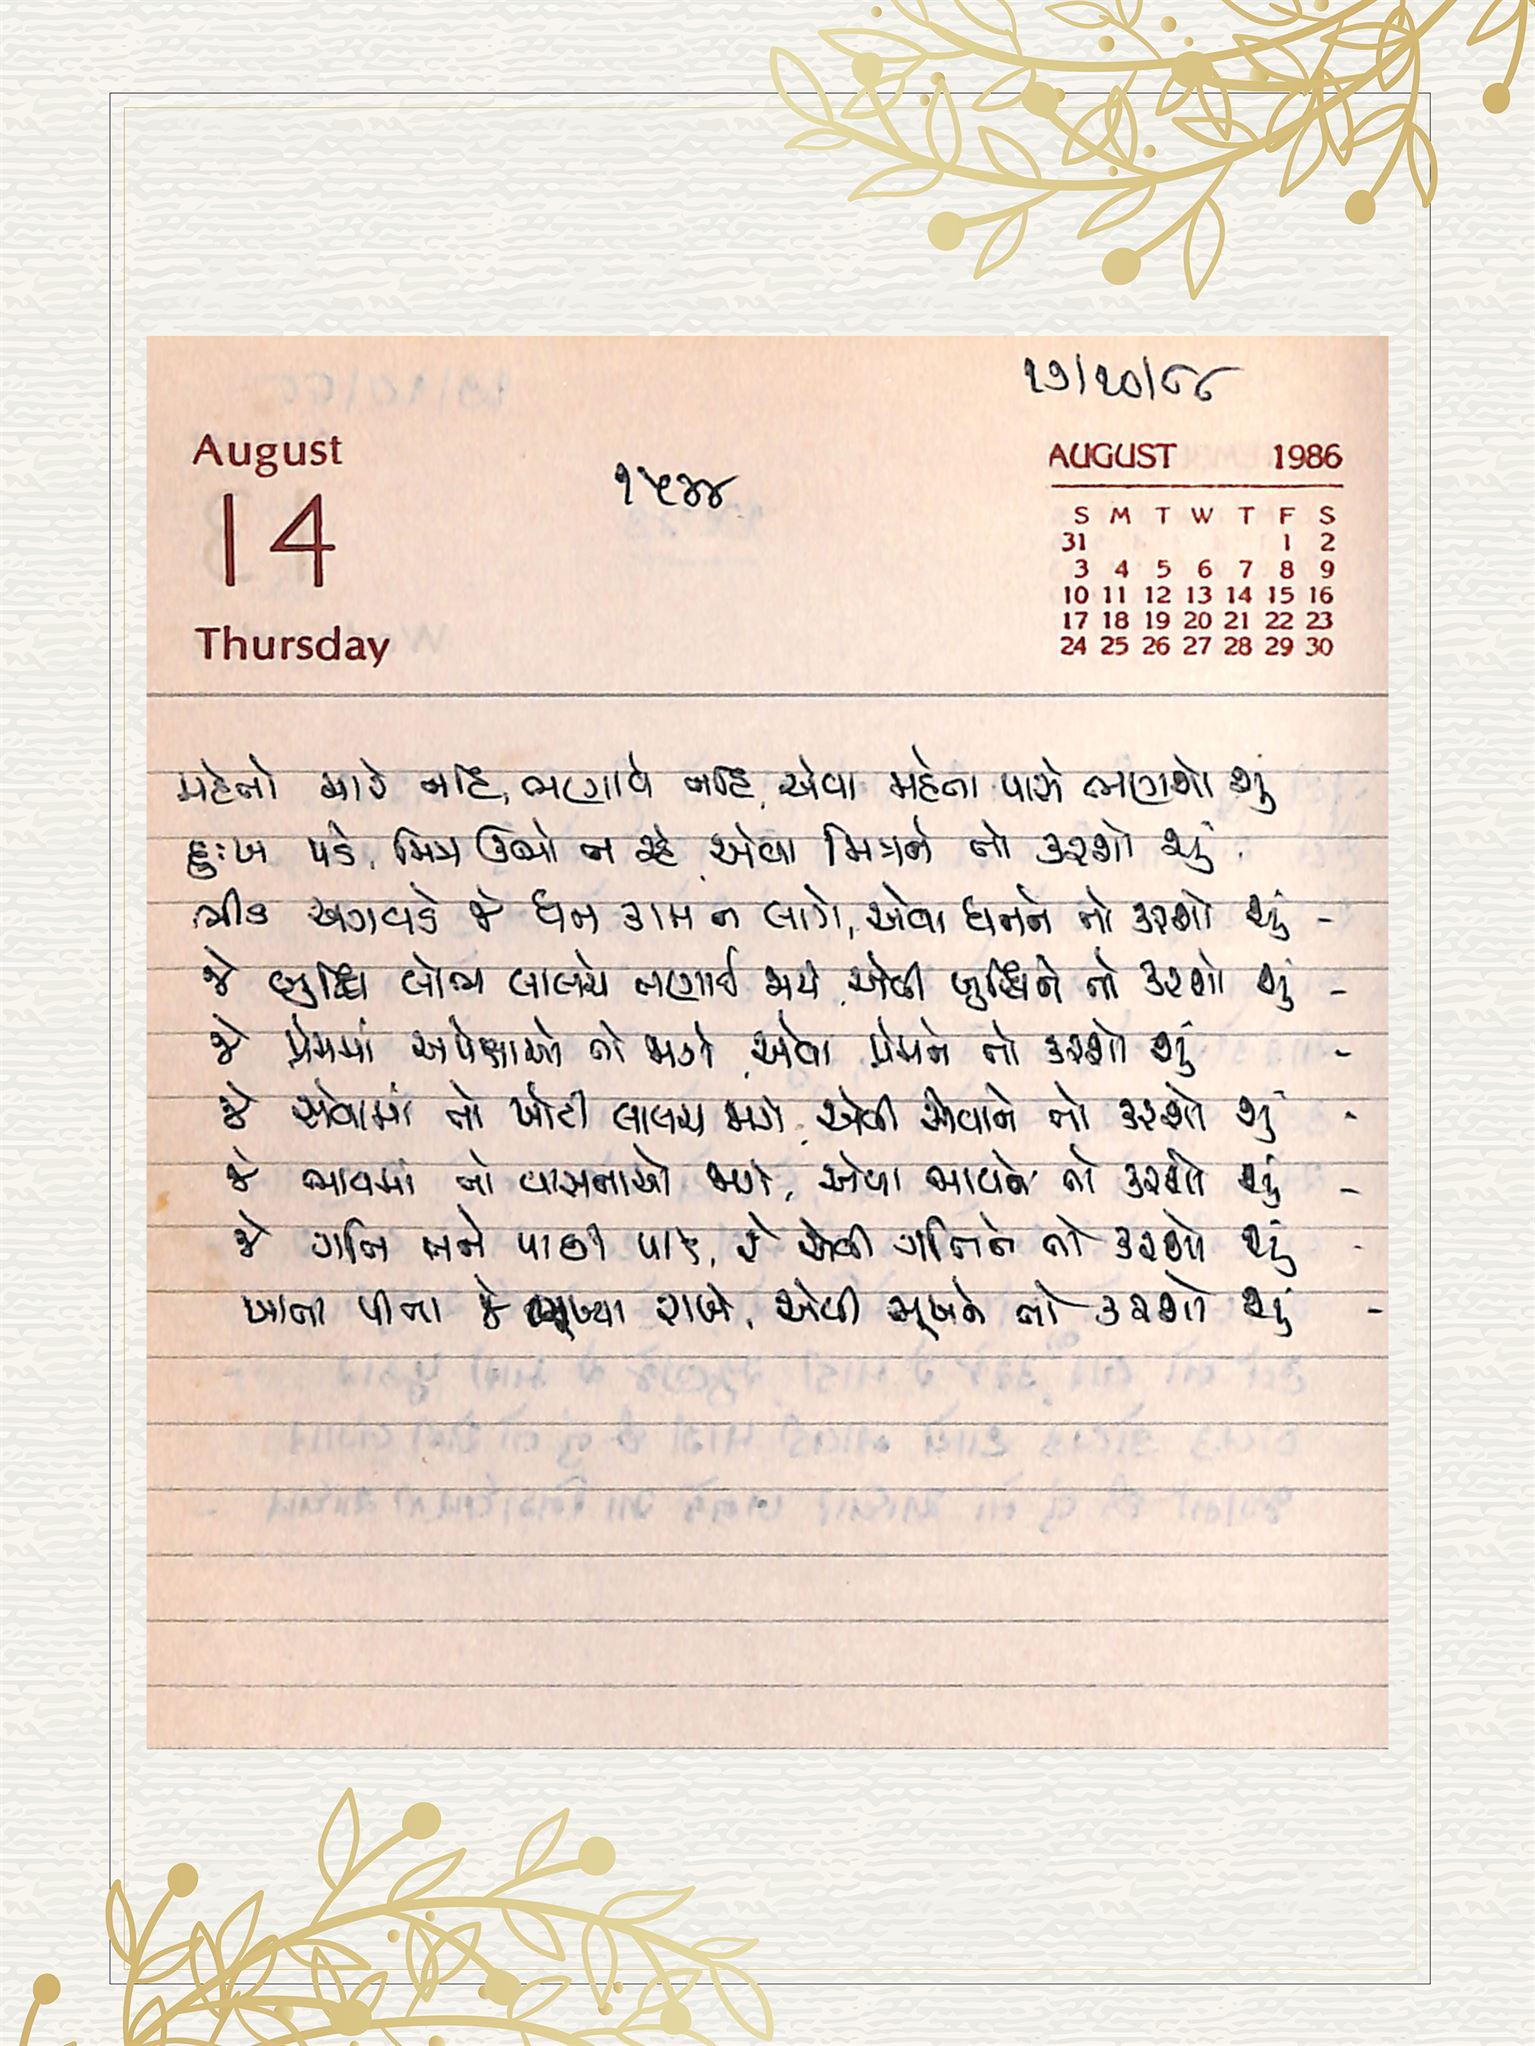 ૧૭/૧૦/૮૮
August
14
Thursday
૧૫૪૪
AUGUST 1986
S M T W T F S
31 1 2
3 4 5 6 7 8 9
10 11 12 13 14 15 16
17 18 19 20 21 22 23
24 25 26 27 28 29 30
મહેતો મારે નહિ, ભણાવે નહિ, એવા મહેતા પાસે ભણશો શું
દુઃખ પડે, મિત્ર ઊભો ન રહે, એવા મિત્રને તો કરશો શું
ભીડ અગવડે જે ધન કામ ન લાગે, એવા ધનને તો કરશો શું -
જે બુદ્ધિ લોભ લાલચે તણાઈ જાયે, એવી બુદ્ધિને તો કરશો શું -
જે પ્રેમમાં અપેક્ષાઓ તો જાગે, એવા પ્રેમને તો કરશો શું -
જે સેવામાં તો ખોટી લાલચ જાગે, એવી સેવાને તો કરશો શું -
જે ભાવમાં તો વાસનાઓ જાગે, એવા ભાવને તો કરશો શું -
જે ગતિ મને પાછી પાડે, રે એવી ગતિને તો કરશો શું -
ખાતા પીતા જે ભૂખ્યા રાખે, એવી ભૂખને તો કરશો શું -